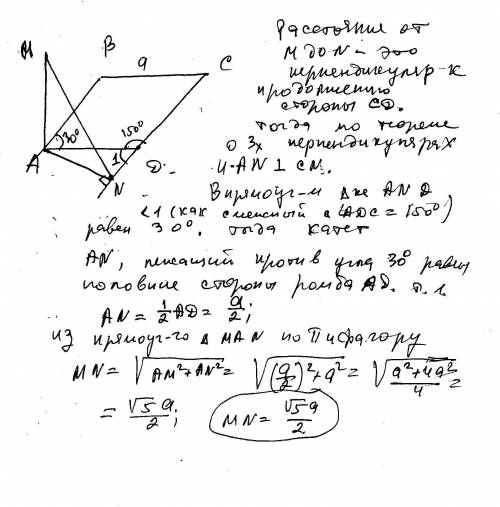 M
B
a
C
A
30°
150°
1
D.
N
Расстояние от
М до N – это
перпендикуляр к
продолжению
стороны CD.
Тогда по теореме
о 3х перпендикулярах
и AN ⊥ CN.
В прямоуг-м Δ-ке AND
<1 (как смежный с <ADC = 150°)
равен 30°. Тогда катет
AN, лежащий против угла 30° равен
половине стороны ромба AD. т.е.
AN = 1/2 AD = a/2;
из прямоуг-го Δ MAN по Пифагору
MN = √(AM² + AN²) = √((a/2)² + a²) = √((a² + 4a²)/4) =
= √5a/2; MN = √5a/2